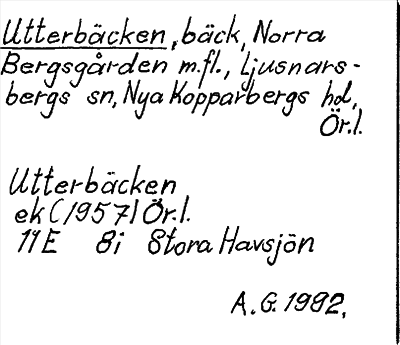 Utterbäcken, bäck, Norra
Bergsgården m.fl., Ljusnars-
bergs sn, Nya Kopparbergs hd,
Ör.l.
Utterbäcken
ek (1957) Ör.l.
11E 8i Stora Havsjön
A.G. 1992.